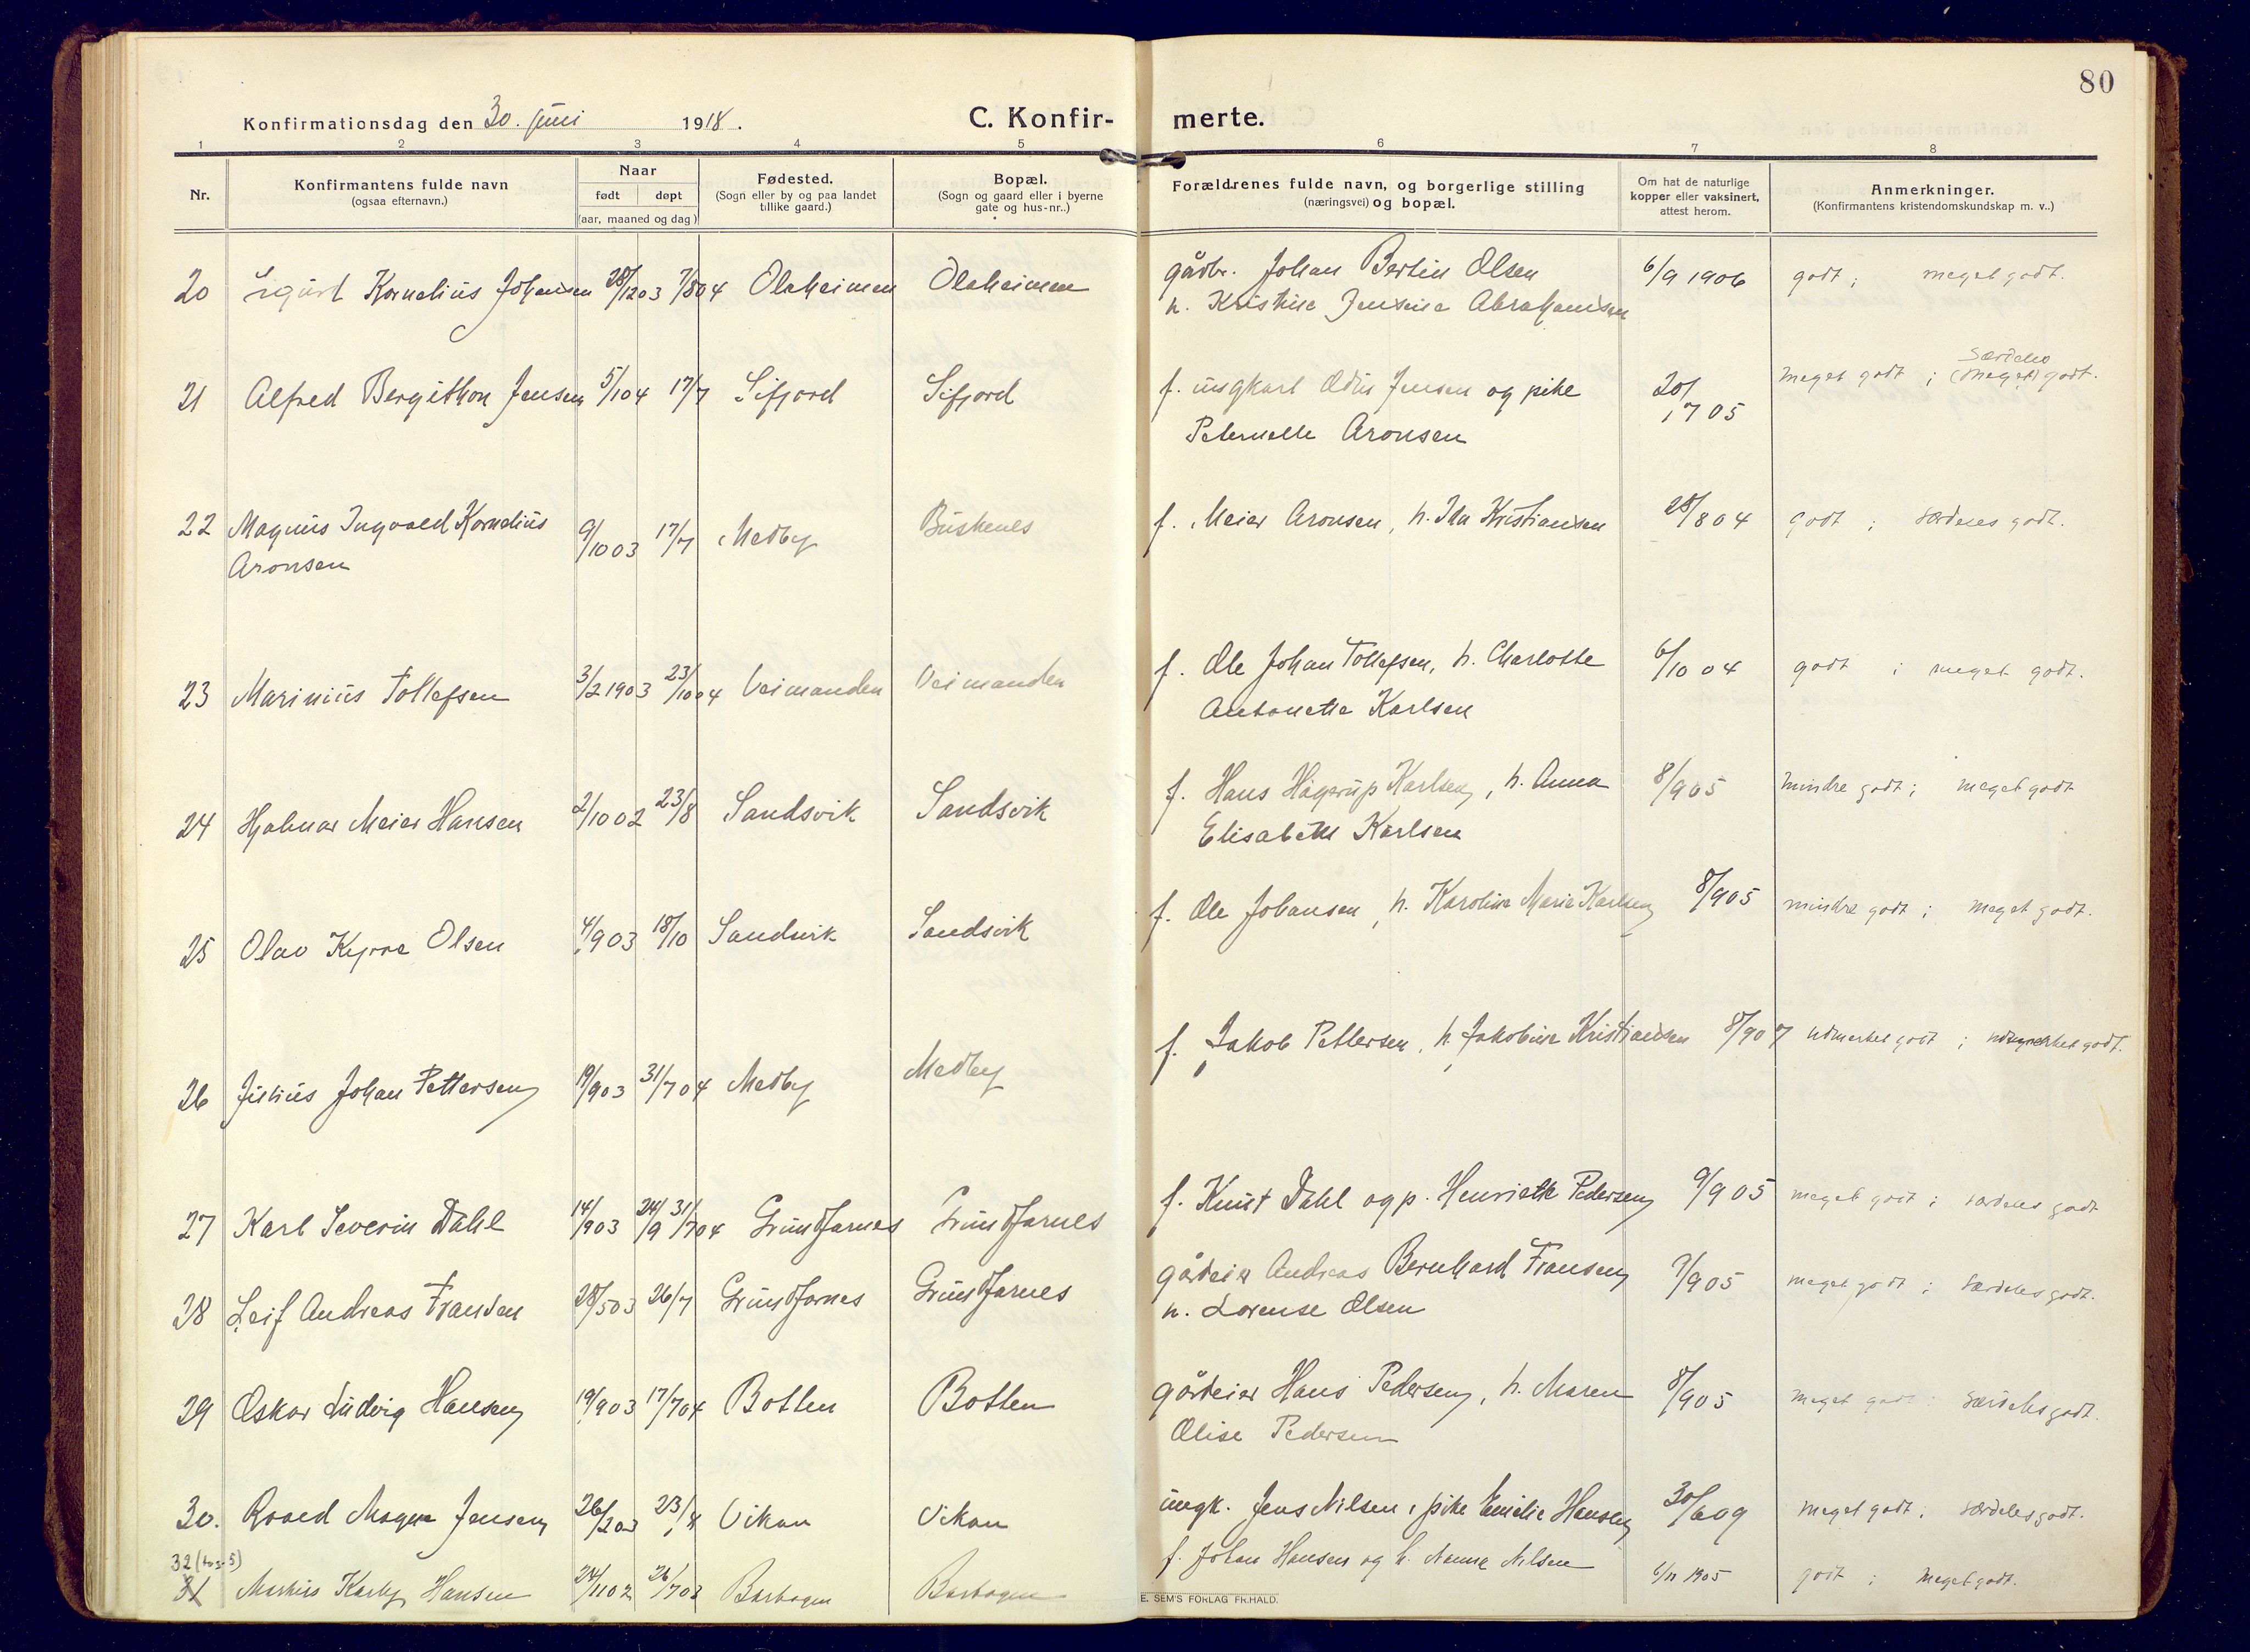 80
Konfirmationsdag den 30. juni 1918.
C. Konfir- merte.
1 2 3 4 5 6 7 8
Nr.
Konfirmantens fulde navn
(ogsaa efternavn.)
Naar
født døpt
(aar, maaned og dag)
Fødested.
(Sogn eller by og paa landet
tillike gaard.)
Bopæl.
(Sogn og gaard eller i byerne
gate og hus-nr..)
Forældrenes fulde navn, og borgerlige stilling
(næringsvei) og bopæl.
Om hat de naturlige
kopper eller vaksinert,
attest herom.
Anmerkninger.
(Konfirmantens kristendomskundskap m. v..)
20 Sigurt Kornelius Johansen 28/12 03 7/8 04 Olaheimen Olaheimen gårdbr. Johan Bertin Olsen 6/9 1906 godt ; meget godt.
h. Kristine Jensine Abrahamsen
21 Alfred Bergithon Jensen 5/1 04 17/7 Sifjord Sifjord f. ungkarl Odin Jensen og pike 20/7 05 meget godt ; særdeles (meget) godt.
Peternelle Aronsen
22 Magnus Ingvald Kornelius 9/10 03 17/7 Medby Buskenes f. Meier Aronsen, h. Ida Kristiansen 28/8 04 godt ; særdeles godt.
Aronsen
23 Marinius Tollefsen 3/2 1903 23/10 04 Veimanden Veimanden f. Ole Johan Tollefsen, h. Charlotte 6/10 04 godt ; meget godt.
Antonette Karlsen
24 Hjalmar Meier Hansen 2/10 02 23/8 Sandsvik Sandsvik f. Hans Hagerup Karlsen, h. Anna 8/9 05 mindre godt ; meget godt
Elisabeth Karlsen
25 Olav Kyrre Olsen 4/9 03 18/10 Sandsvik Sandsvik f. Ole Johansen, h. Karoline Marie Karlsen 8/9 05 mindre godt ; meget godt.
26 Julius Johan Pettersen 19/9 03 31/7 04 Medby Medby f. Jakob Pettersen, h. Jakobine Kristiansen 8/9 07 udmerket godt ; udmerket godt.
27 Karl Severin Dahl 14/9 03 24/9 31/7 04 Grundfarnes Grundfarnes f. Knut Dahl og p. Henriette Pedersen 9/9 05 meget godt ; særdeles godt
28 Leif Andreas Fransen 28/5 03 26/7 Grundfarnes Grundfarnes gårdeier Andreas Bernhard Fransen 7/9 05 meget godt ; særdeles godt.
h. Lorense Olsen
29 Oskar Ludvig Hansen 19/9 03 17/7 04 Botten Botten gårdeier Hans Pedersen, h. Maren 8/9 05 meget godt særdeles godt.
Olise Pedersen
30. Roald Magne Jensen 26/2 03 23/8 Vikan Vikan ungk. Jens Nilsen, pike Emelie Hansen 30/6 09 meget godt ; særdeles godt.
32
31 Markus Karby Hansen 24/11 02 26/7 03 Barbogen Barbogen f. Johan Hansen og h. Nanna Nilsen 6/11 1905 godt ; meget godt.
E. SEM'S FORLAG FR.HALD.